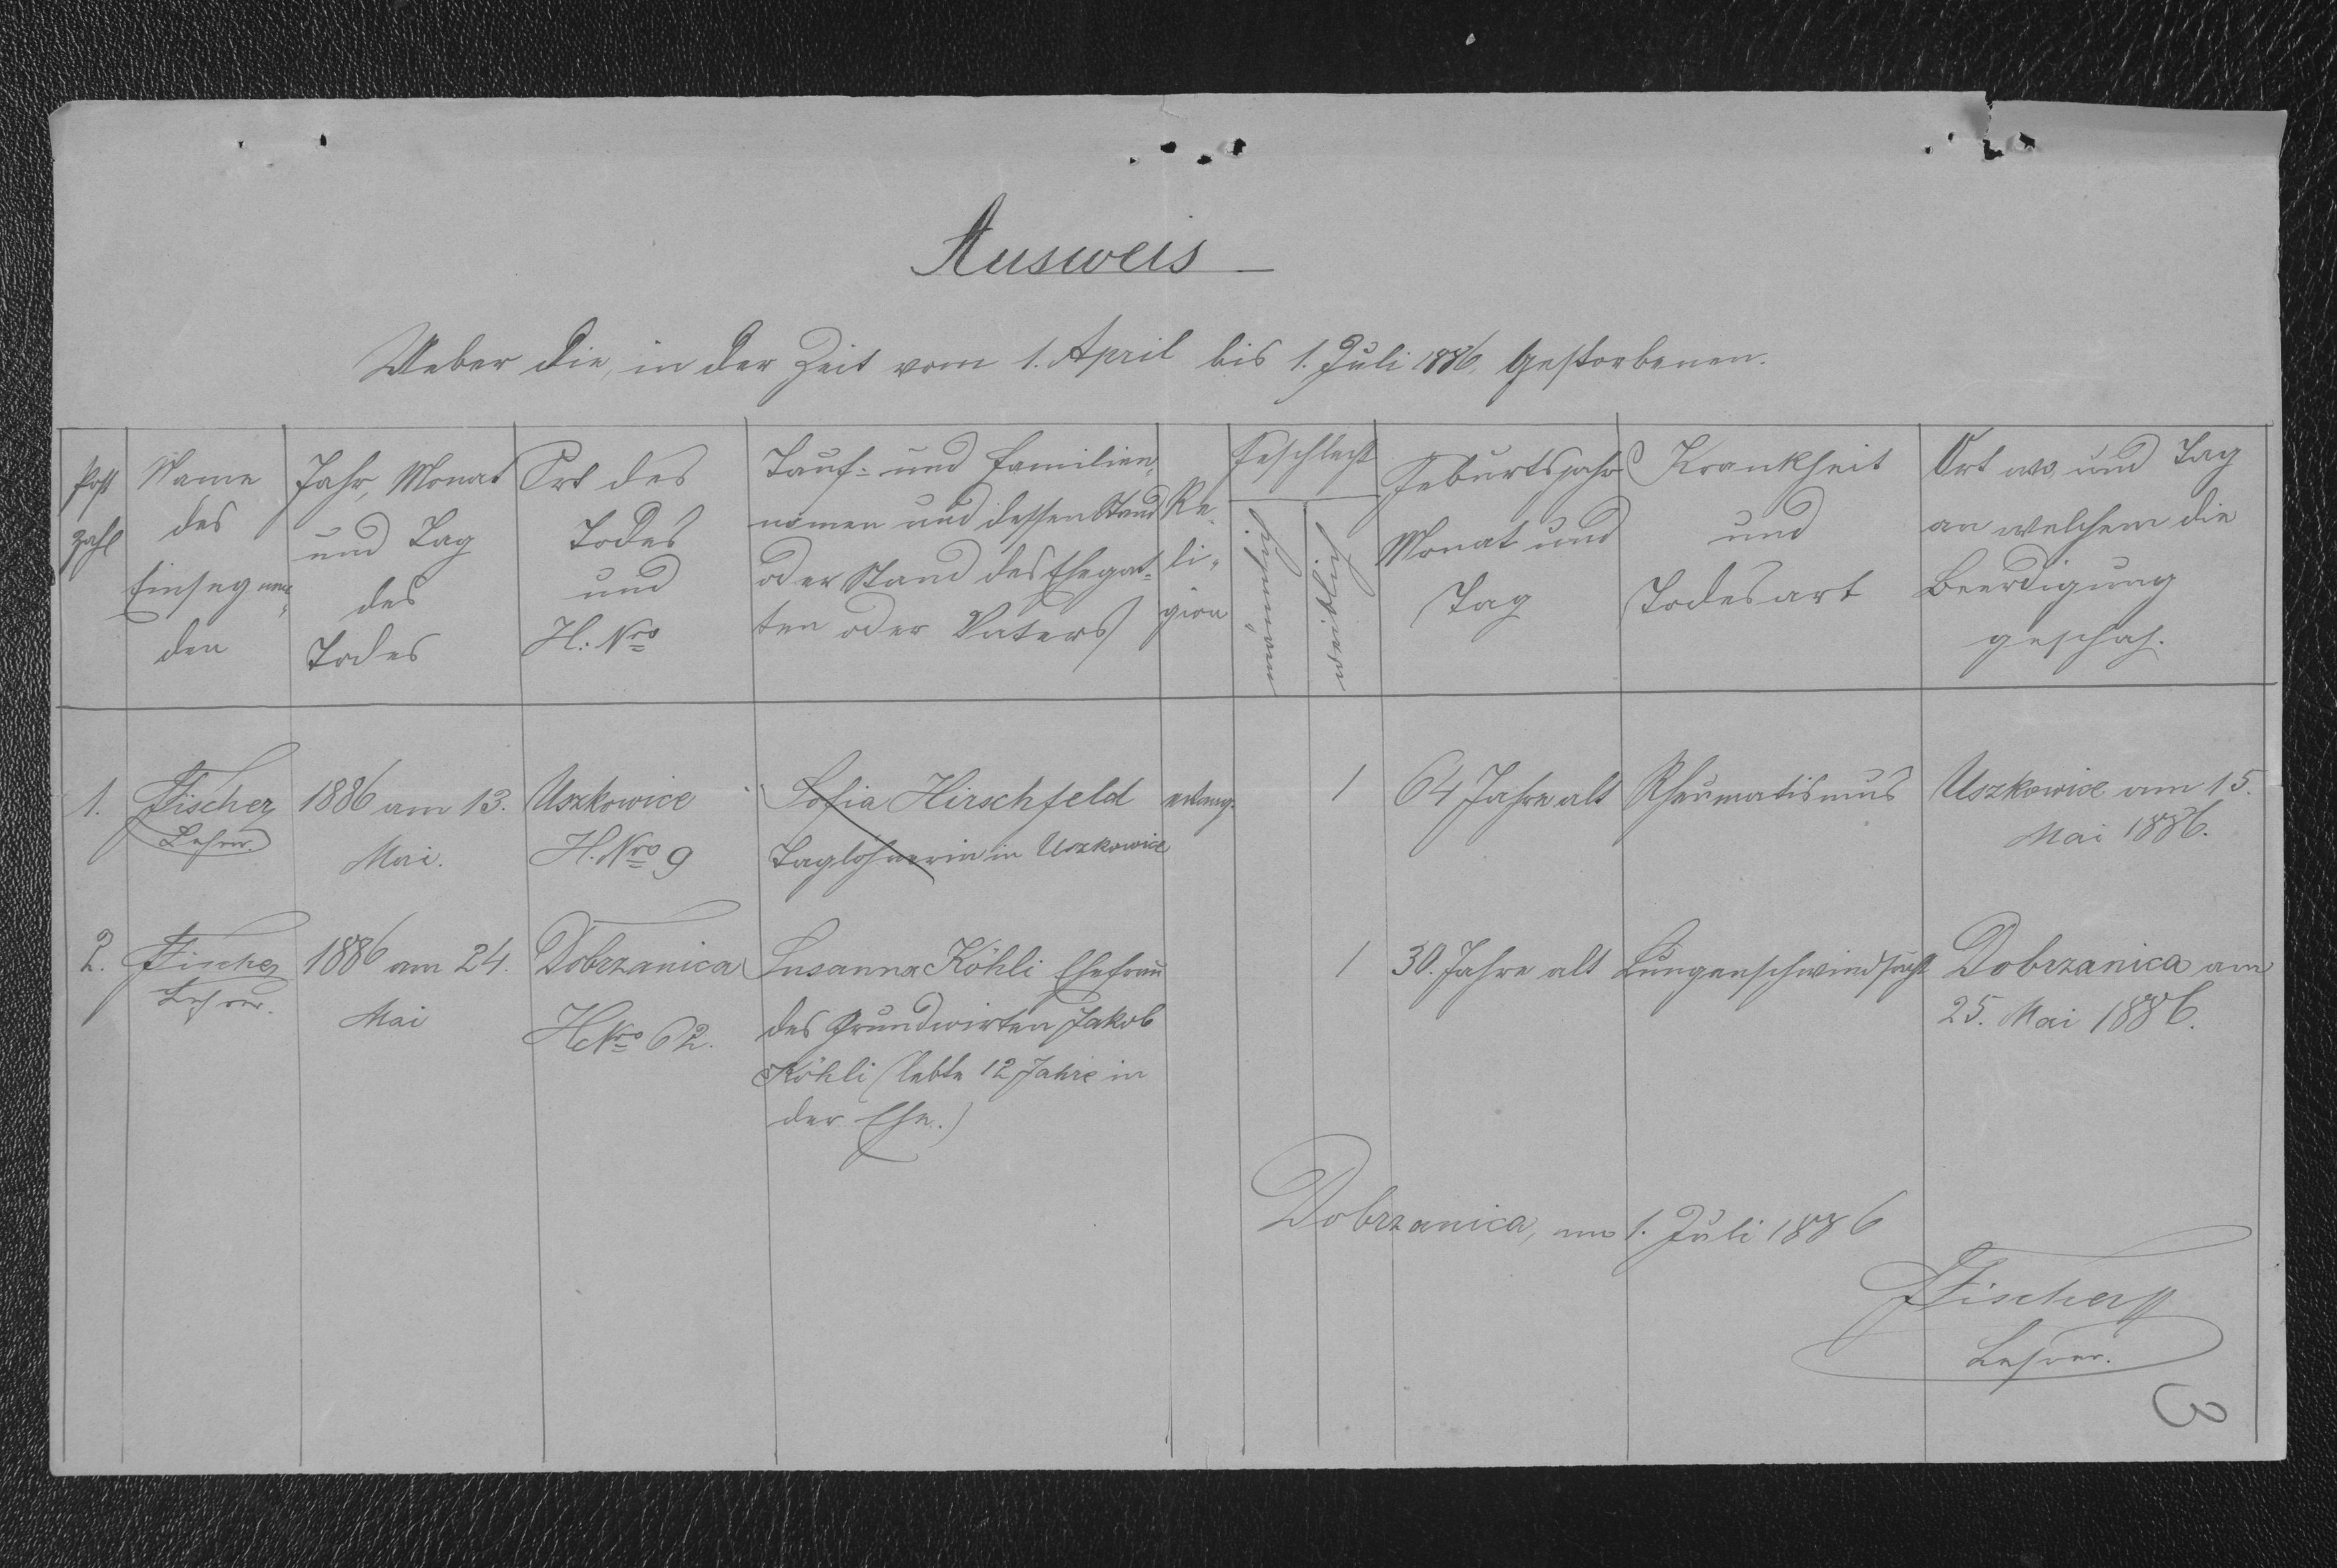 Ausweis
Ueber die, in der Zeit vom 1. April bis 1. Juli 1886, Gestorbenen.
Post
zahl
Name
des
Einsegnen„
den
Jahr, Monat
und Tag
des
Todes
Ort des
Todes
und
H: Nro
Tauf- und Familien„
namen und dessen Stand
oder Stand des Ehegat-
ten oder Vaters
Re„
li„
gion
Geschlecht
männlich
weiblich
Geburtsjahr
Monat und
Tag
Krankheit
und
Todesart
Ort wo, und Tag
an welchem die
Beerdigung
geschah.
1. Fischer 1886 am 13. Uszkowice Sofia Hirschfeld evang. 1 64 Jahre alt Rheumatismus Uszkowice am 15.
Lehrer. Mai. H. Nro 9 Taglöhnerin in Uszkowice Mai 1886.
2. Fischer 1886 am 24. Dobrzanica Susanna Köhli Ehefrau 1 30. Jahre alt Lungenschwindsucht Dobrzanica am
Lehrer. Mai H Nro 62. des Grundwirten Jakob 25. Mai 1886.
Köhli (lebte 12 Jahre in
der Ehe.)
Dobrzanica, am 1. Juli 1886
Fischer
Lehrer.
3